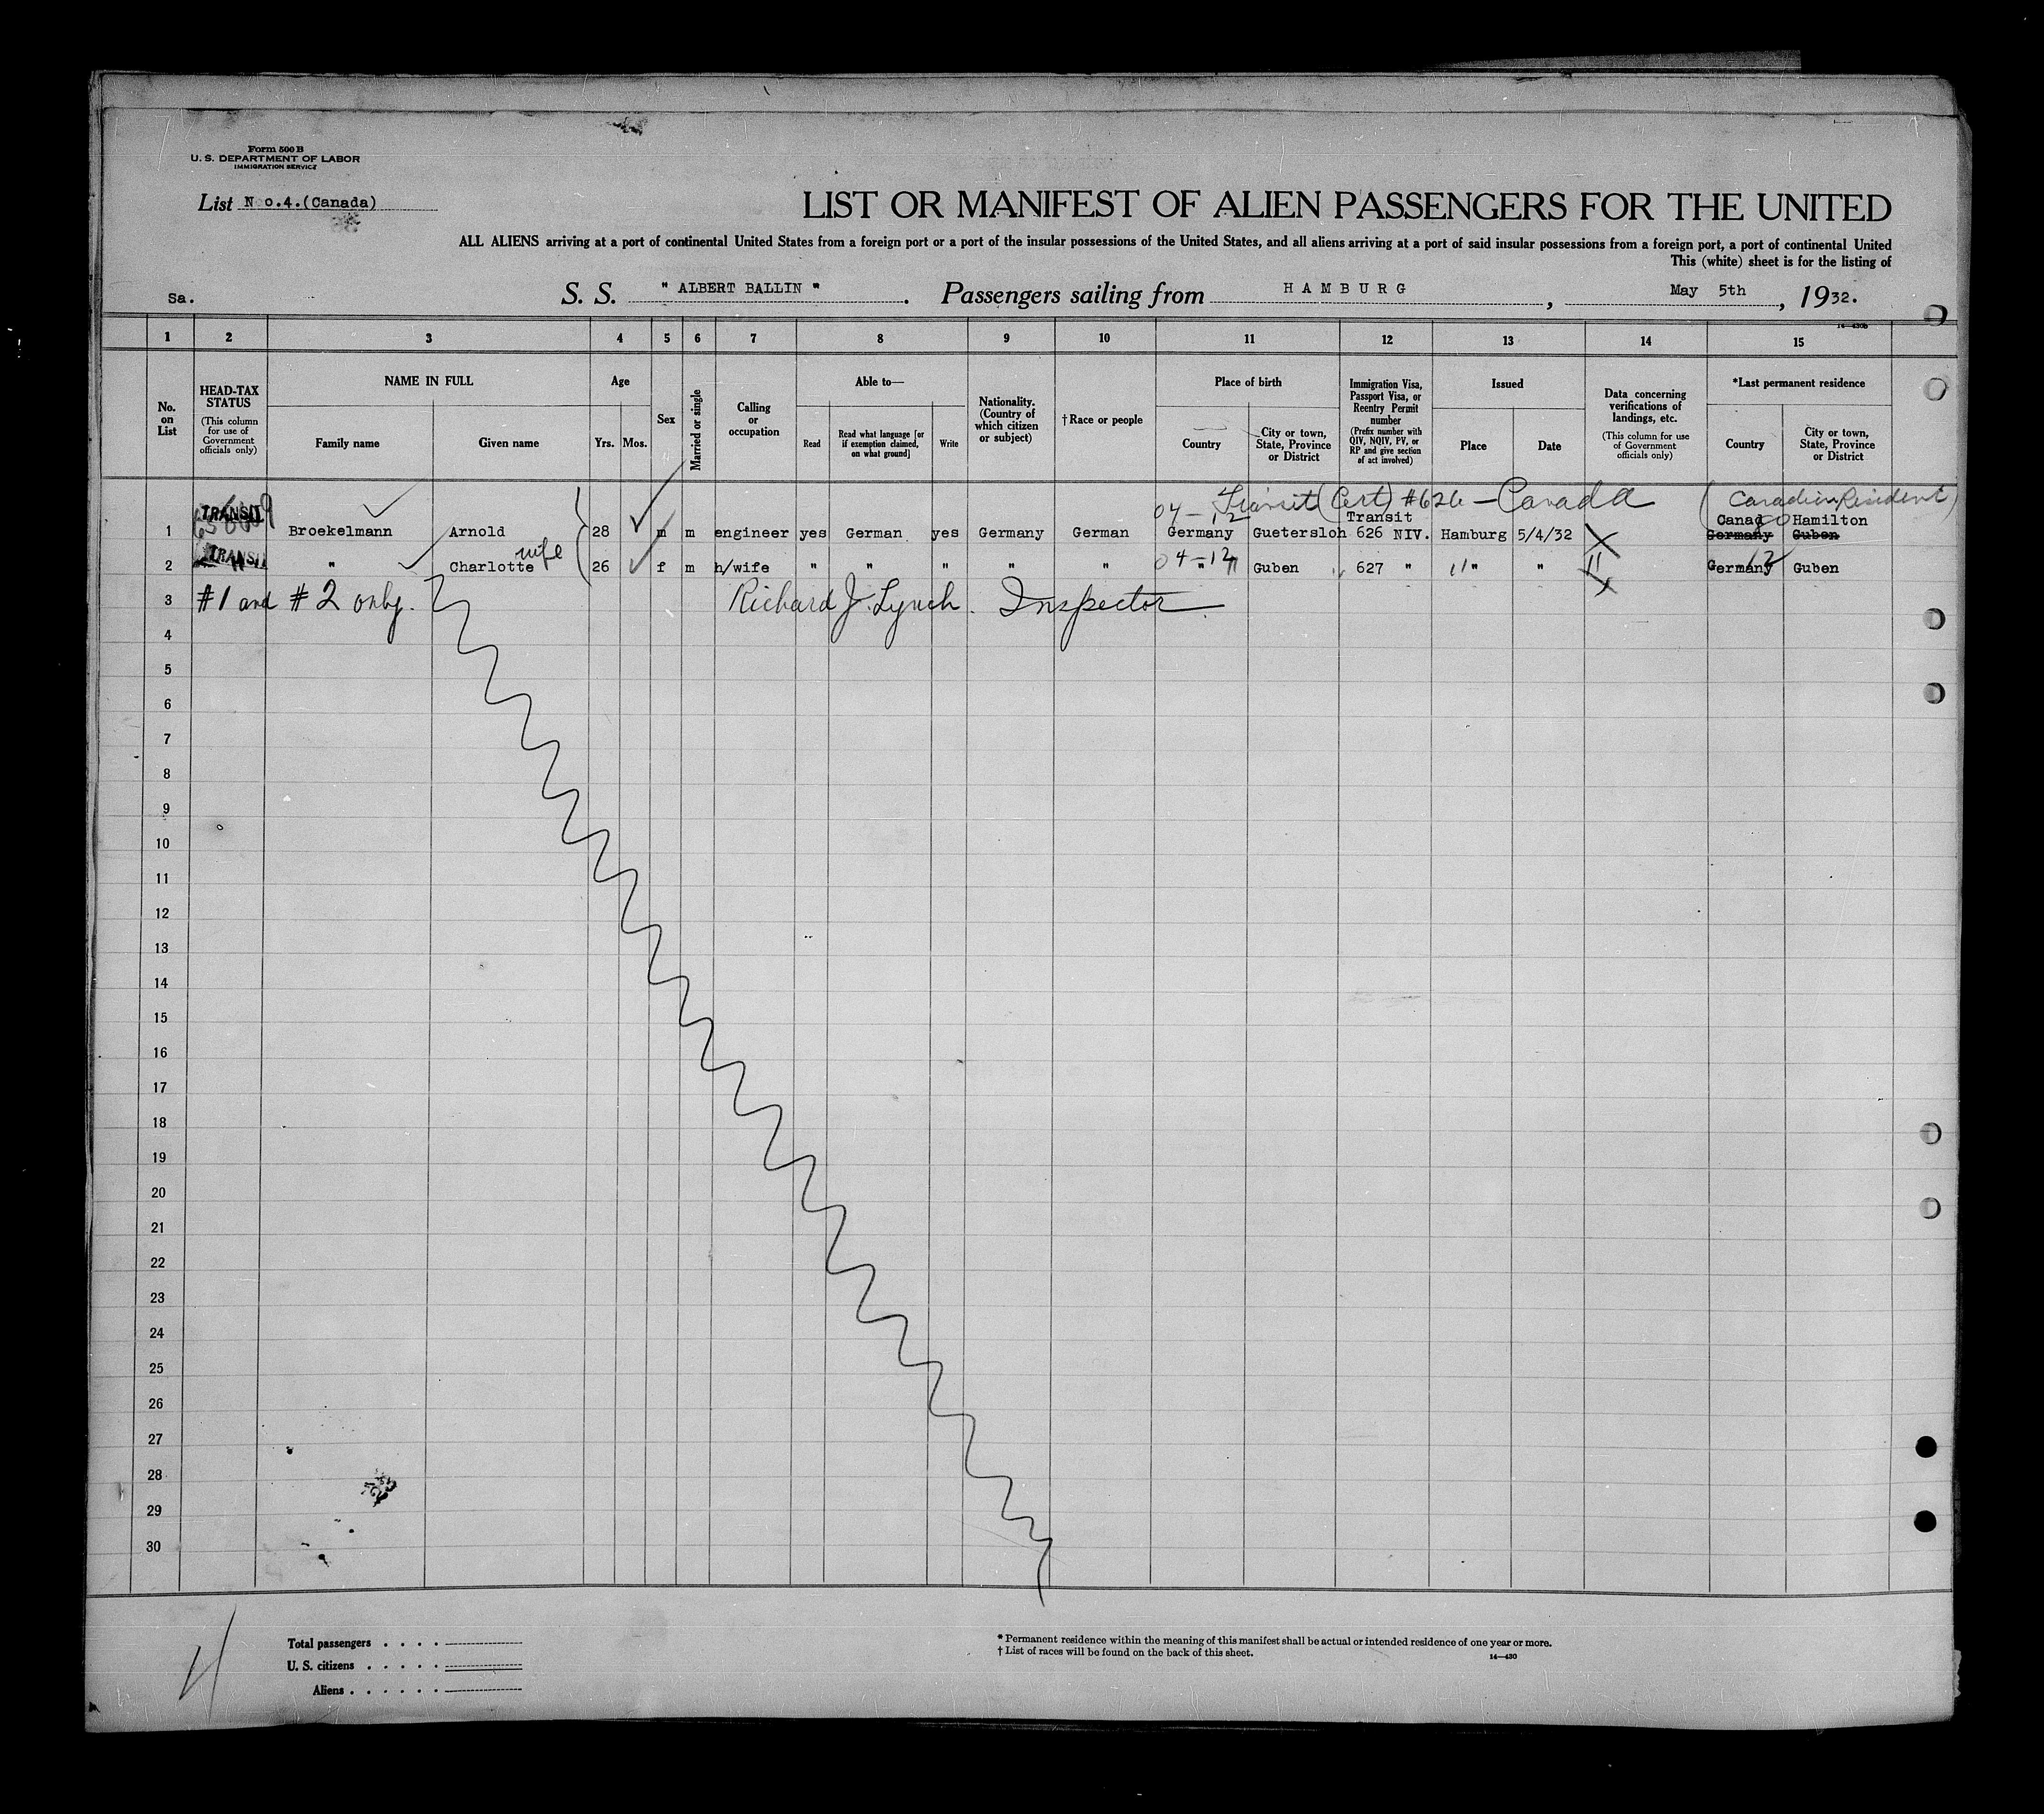 Form 500 B
U. S. DEPARTMENT OF LABOR
IMMIGRATION SERVICE
List No.4.(Canada)
LIST OR MANIFEST OF ALIEN PASSENGERS FOR THE UNITED
ALL ALIENS arriving at a port of continental United States from a foreign port or a port of the insular possessions of the United States, and all aliens arriving at a port of said insular possessions from a foreign port, a port of continental United
This (white) sheet is for the listing of
Sa. S. S. " ALBERT BALLIN " . Passengers sailing from HAMBURG , May 5th , 1932.
14—430b
1 2 3 4 5 6 7 8 9 10 11 12 13 14 15
No. on List
HEAD-TAX STATUS (This column for use of Government officials only)
NAME IN FULL
Family name Given name
Age
Yrs. Mos.
Sex
Married or single
Calling or occupation
Able to—
Read
Read what language [or if exemption claimed, on what ground]
Write
Nationality. (Country of which citizen or subject)
† Race or people
Place of birth
Country
City or town, State, Province or District
Immigration Visa, Passport Visa, or Reentry Permit number (Prefix number with QIV, NQIV, PV, or RP and give section of act involved)
Issued
Place Date
Data concerning verifications of landings, etc. (This column for use of Government officials only)
*Last permanent residence
Country
City or town, State, Province or District
Transit (Cert) #626 — Canada (Canadian Resident)
TRANSIT 04 — 12 Transit Canad Hamilton
1 Broekelmann Arnold 28 m m engineer yes German yes Germany German Germany Guetersloh 626 NIV. Hamburg 5/4/32 Germany Guben
TRANSIT wife 04 — 12
2 " Charlotte 26 f m h/wife " " " " " " Guben 627 " " " Germany Guben
3 #1 and #2 only. Richard J. Lynch. Inspector
4
5
6
7
8
9
10
11
12
13
14
15
16
17
18
19
20
21
22
23
24
25
26
27
28
29
30
Total passengers . . . .
U. S. citizens . . . . .
Aliens . . . . . .
* Permanent residence within the meaning of this manifest shall be actual or intended residence of one year or more.
† List of races will be found on the back of this sheet.
14—430